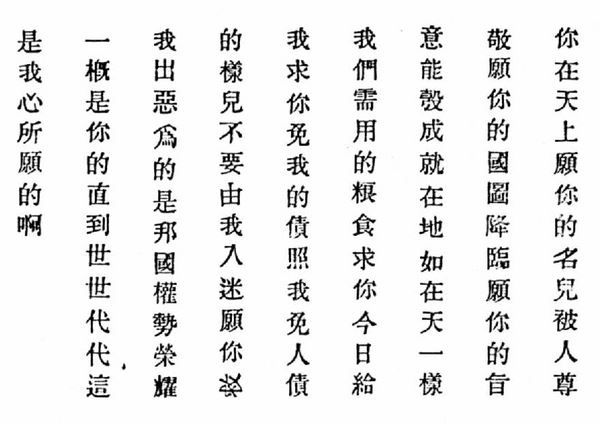 你在天上願你的名兒被人尊
敬願你的國圖降臨願你的旨
意能彀成就在地如在天一樣
我們需用的粻食求你今日給
我求你免我的債照我免人債
的樣兒不要由我入迷願你救
我出惡爲的是那國權勢榮耀
一槪是你的直到世世代代這
是我心所願的啊